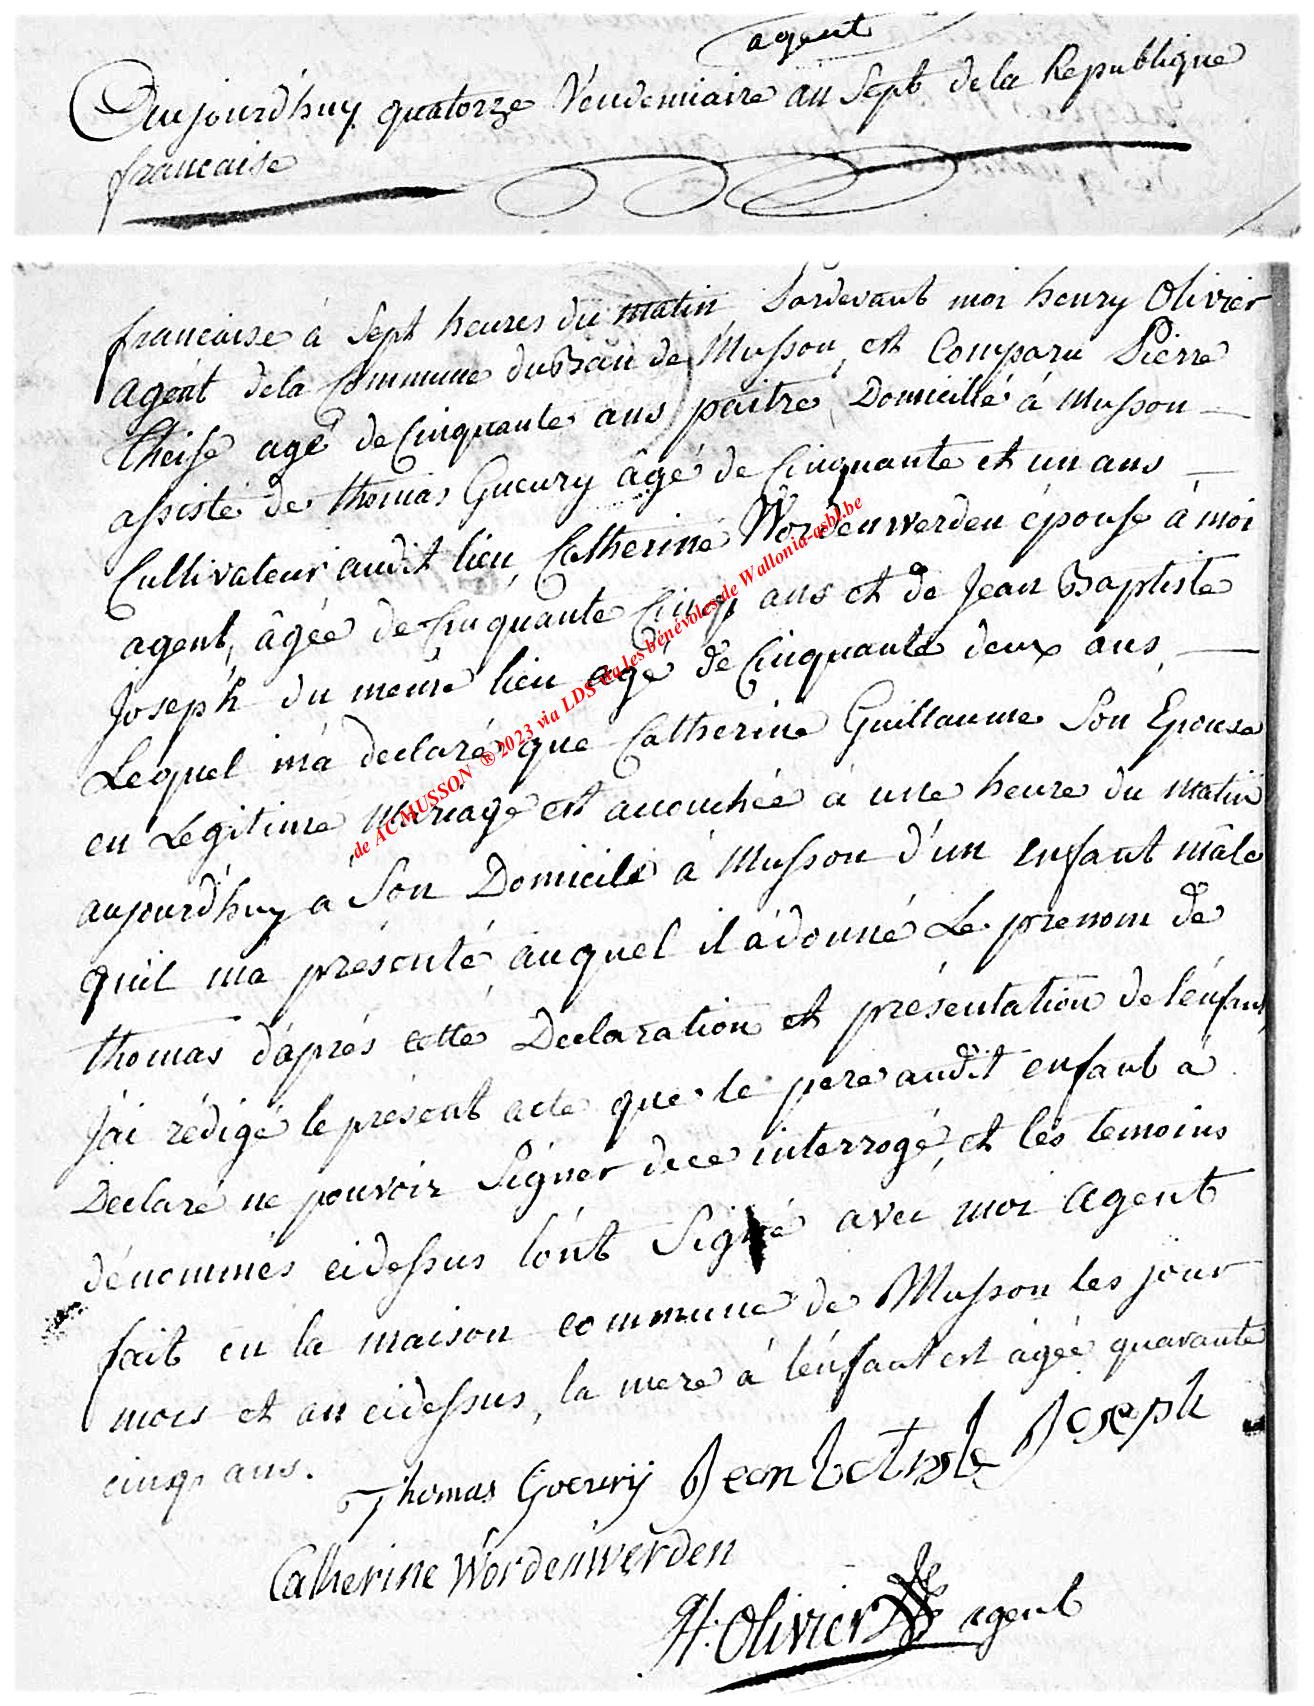 agent
Aujourd'huy quatorze Vendemiaire an Sept de la Republique
francaise
francaise à Sept heures du matin, Pardevant moi henry Olivier
agent dela Commune du Ban de Musson, est Comparu Pierre
theise agé de Cinquante ans paitre, Domicillé à Musson
assisté de thomas Gueury âgé de Cinquante et un ans
Cultivateur audit lieu, Catherine Wordenwerden épouse à moi
agent, âgée de Cinquante Cinq ans et de Jean Baptiste
Joseph du meme lieu agé de Cinquante deux ans,
Lequel m'a declaré que Catherine Guillaume Son Epouse
en Legitime Mariage est accouchée à une heure du matin
aujourd'huy a Son Domicile à Musson d'un enfant mâle
qu'il ma présenté auquel il a donné Le prenom de
thomas d'aprés cette Declaration et présentation de l'enfant,
J'ai rédigé le présent acte que le pere audit enfant a
Déclaré ne pouvoir Signer de ce interrogé, et les temoins
dénommés cidessus l'ont Signé avec moi agent
fait en la maison commune de Musson les jour
mois et an cidessus, la mere à l'enfant est âgée quarante
cinq ans.
Thomas Goeury Jean batist Joseph
Catherine Wordenwerden
H: Olivier agent
de AC MUSSON ® 2023 via LDS via les bénévoles de Wallonia-asbl.be